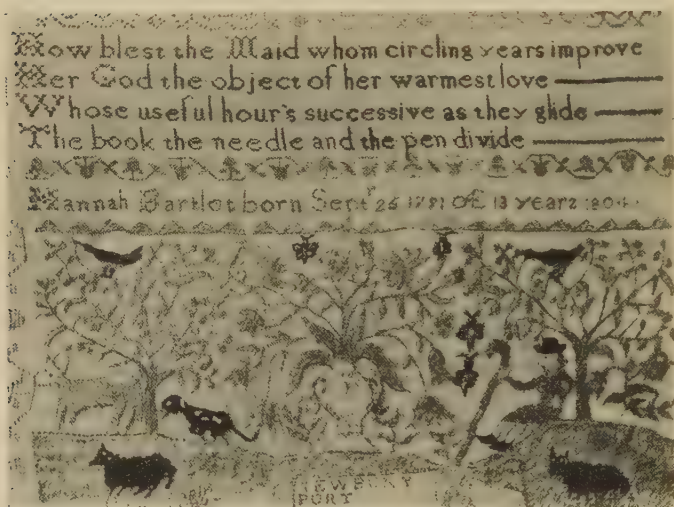 How blest the Maid whom circling years improve
Her God the object of her warmest love
Whose useful hour's successive as they glide
The book the needle and the pen divide
Hannah Bartlot born Sept 26 1791 Æ 13 years 1804
NEWBURY
PORT